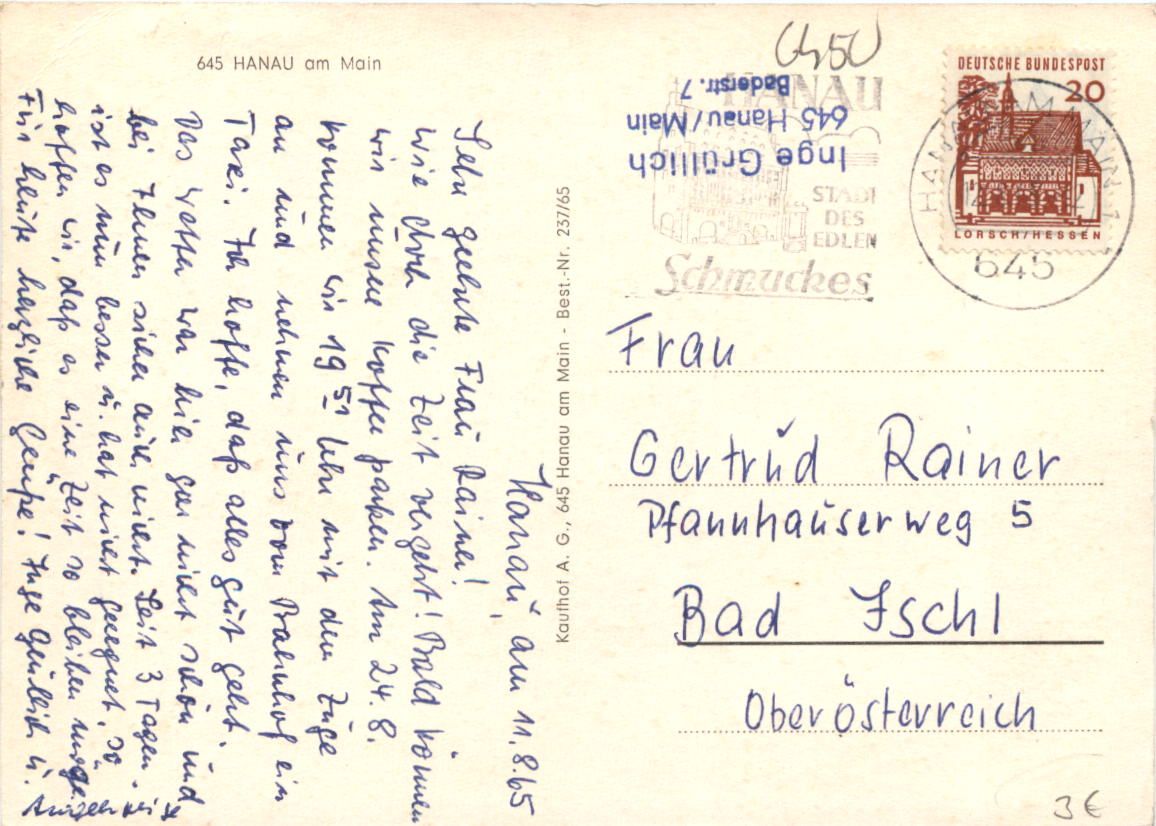 645 HANAU am Main
Hanau, am 11.8.65
Sehr geehrte Frau Rainer!
Wie doch die Zeit vergeht! Bald können
wir unsere Koffer packen. Am 24.8.
kommen wir 19 51 Uhr mit dem Zuge
an und nehmen uns vom Bahnhof ein
Taxi. Ich hoffe, daß alles gut geht.
Das Wetter war hier gar nicht schön und
bei Ihnen sicher auch nicht. Seit 3 Tagen
ist es nun besser u. hat nicht geregnet. So
hoffen wir, daß es eine Zeit so bleiben möge.
Für heute herzliche Grüße! Inge Grüllich u.
Kaufhof A. G., 645 Hanau am Main - Best.-Nr. 237/65
6450
Inge Grüllich
645 Hanau/Main
Baderstr. 7
HANAU
STADT
DES
EDLEN
Schmuckes
DEUTSCHE BUNDESPOST
20
LORSCH/HESSEN
HANAU AM MAIN 1
645
Frau
Gertrud Rainer
Pfannhauserweg 5
Bad Ischl
Oberösterreich
3€